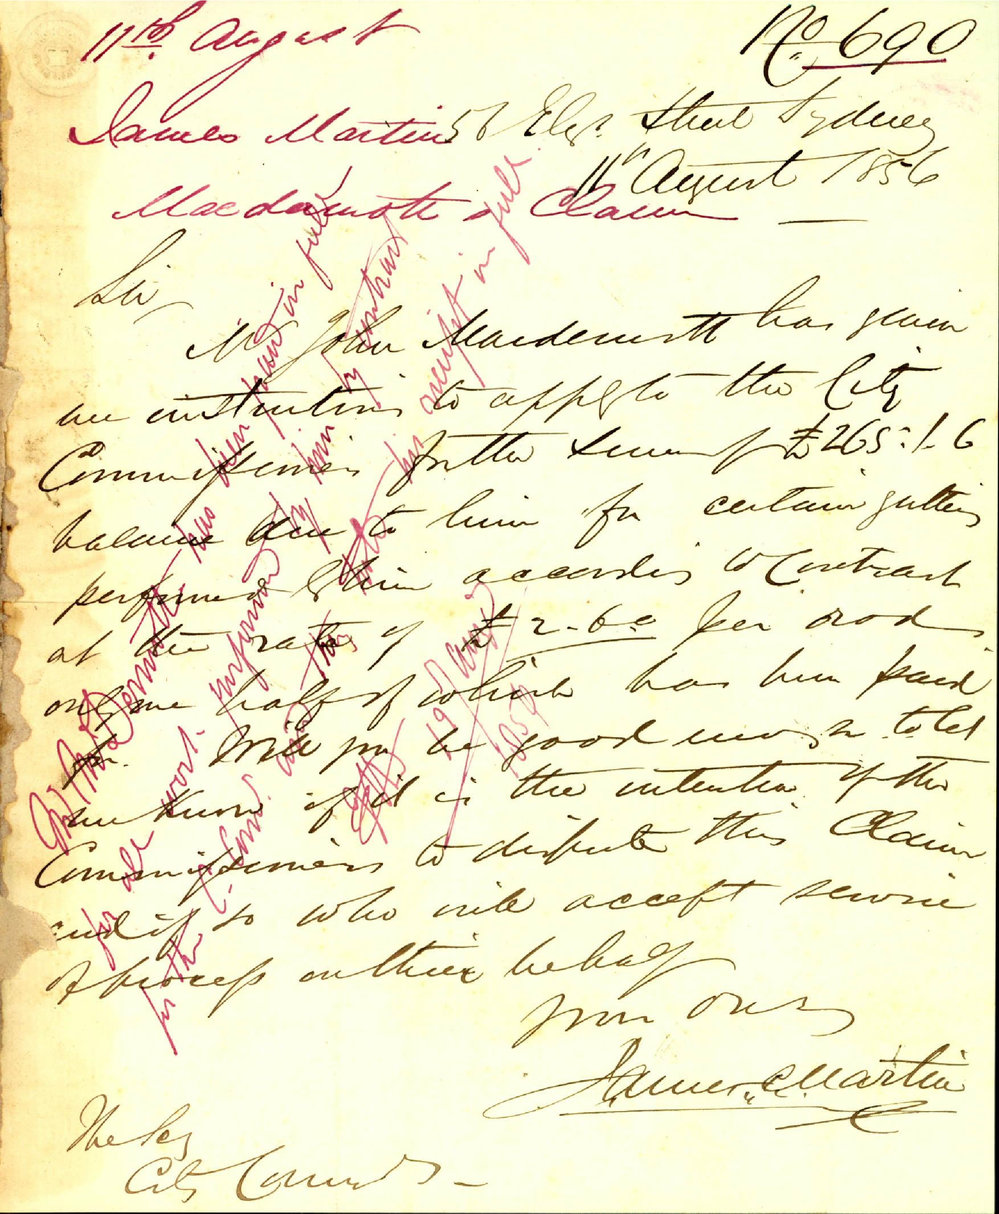 11th August
No. 690
James Martin
56 Elizt. Street Sydney
11th August 1856
Macdermott's Claim
Sir
Mr John Macdermott has given
me instructions to apply to the City
Commissioners for the sum of £265:1.6
balance due to him for certain gutters
performed by him according to Contract
at the rate of £2-6s per rod
only one half of which has been paid
Will you be good enough to let
me know if it is the intention of the
Commissioners to dispute this Claim
and if so who will accept service
of process on their behalf
Your Obt
James Martin
The Secy
City Commrs
Mr McDermott has been paid in full
for all work performed by him by Contract
for the Comrs. and this is his receipt in full
19 Augt
1856